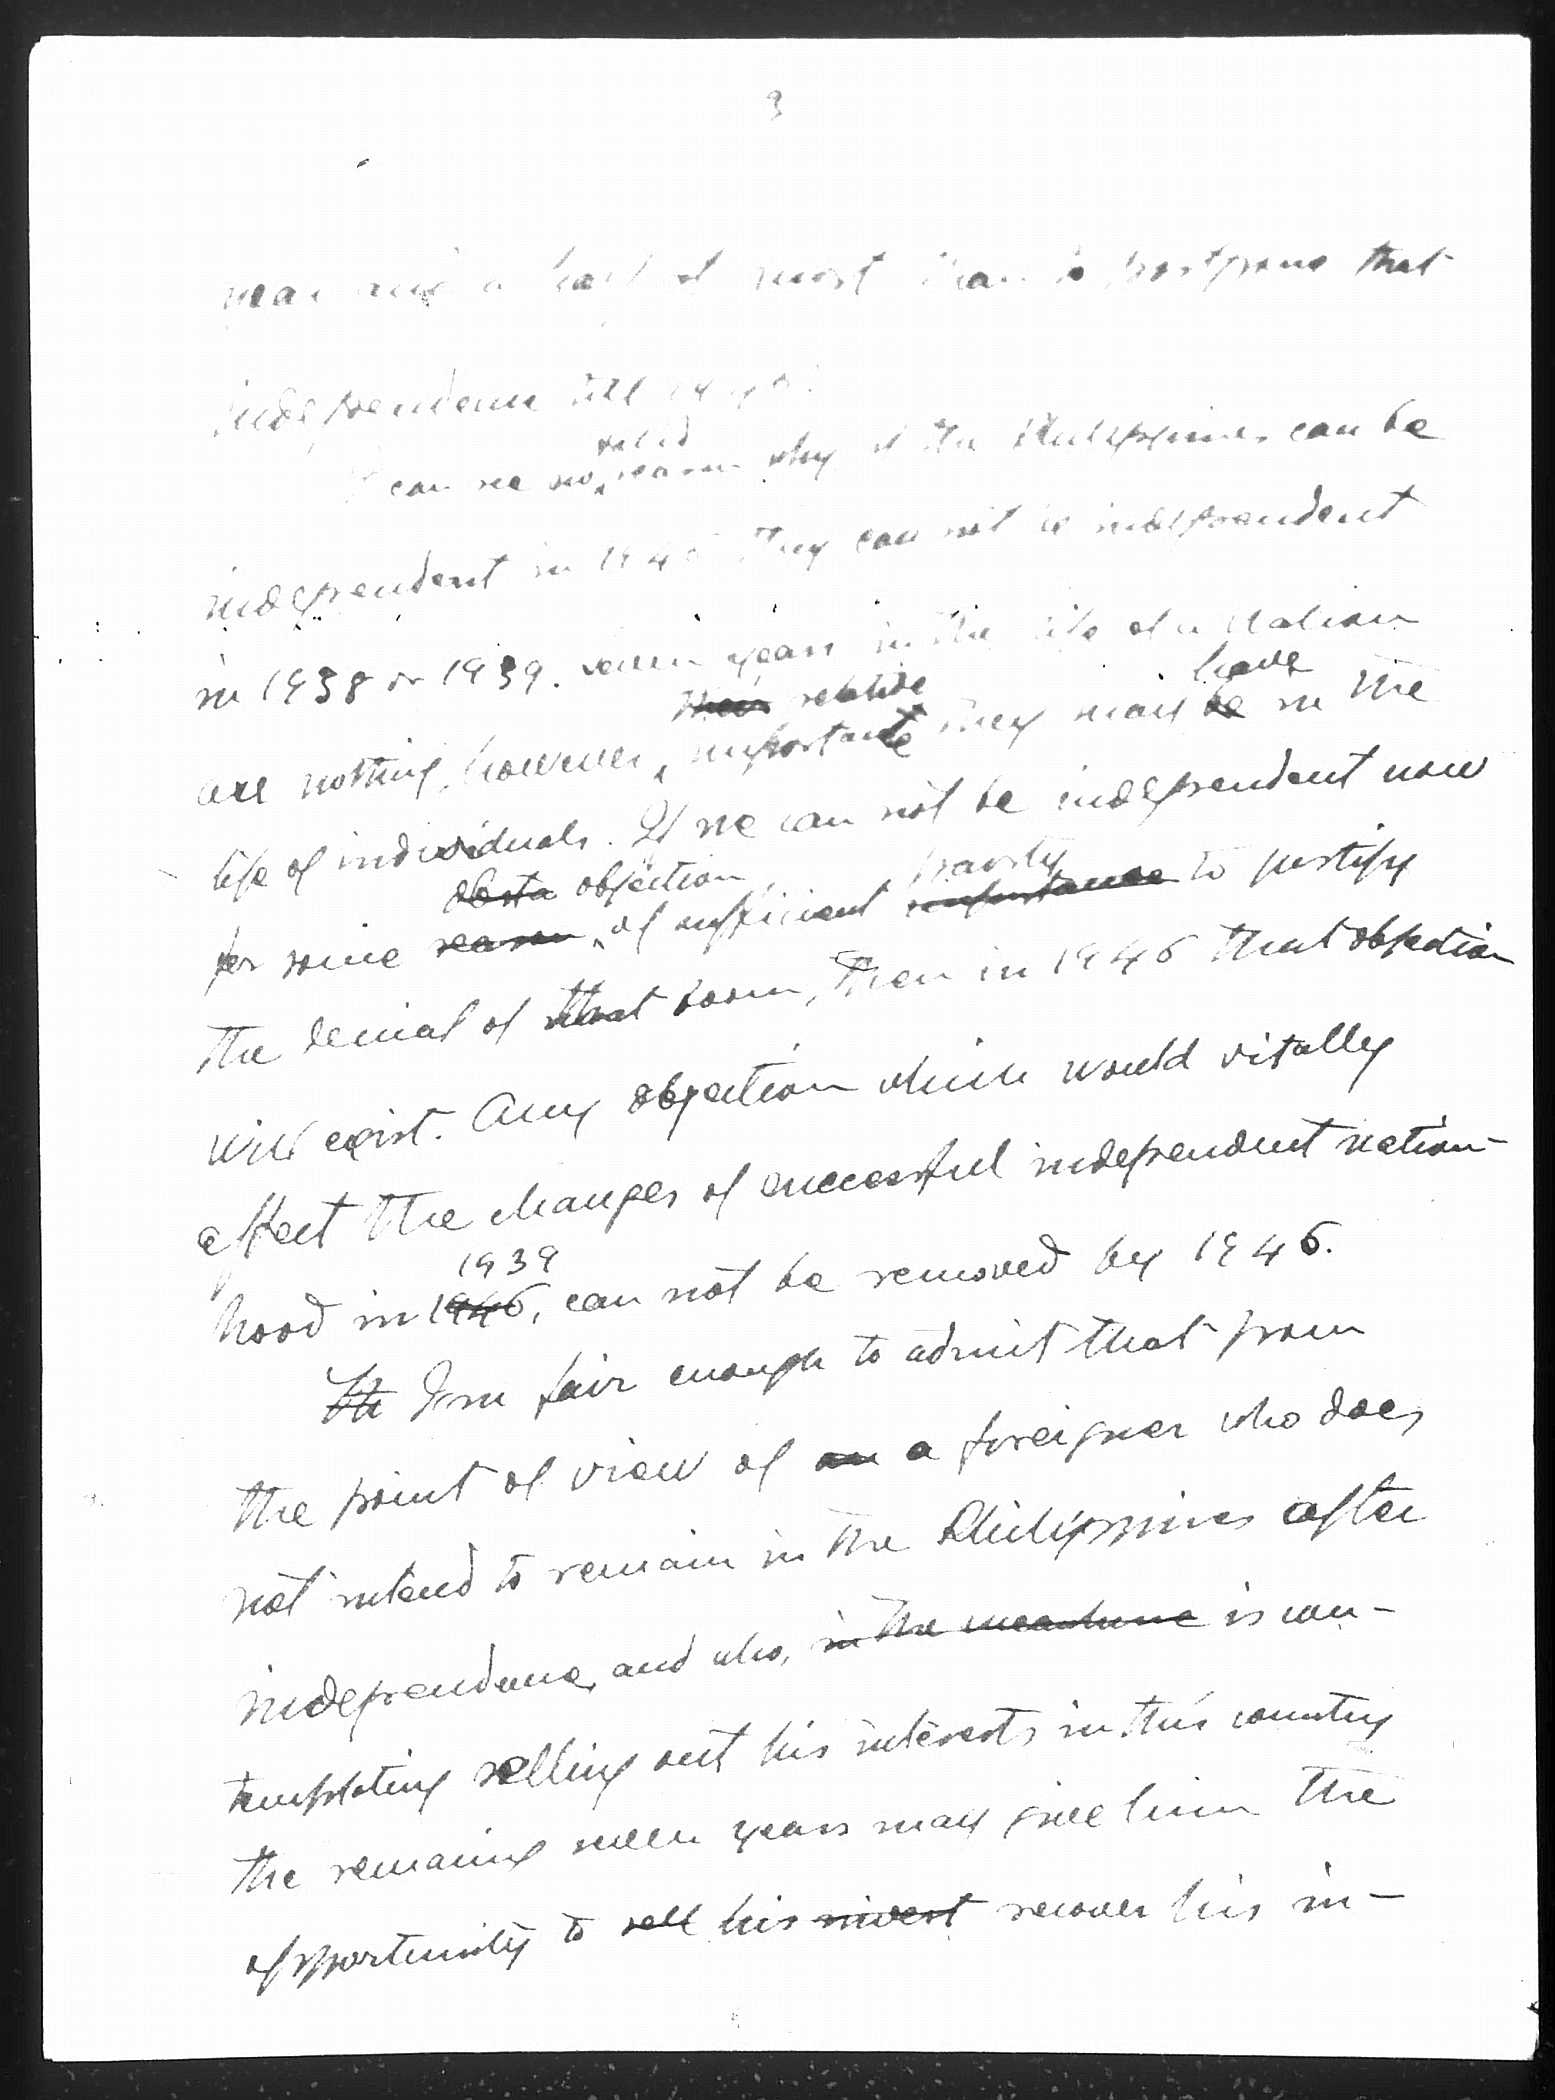 3
year and a half at most than to postpone that
independence till 1946.
valid
I can see no reason why if the Philippines can be
independent in 1946 they can not be independent
in 1938 or 1939. seven years in the life of a Nation
their relative have
are nothing, however, important they may be in the
life of individuals. If we can not be independent now
obsta objection, gravity
for some reason of sufficient importance to justify
the denial of that boon, then in 1946 that objection
will exist. Any objection which would vitally
affect the changes of successful independent nation-
1939
hood in 1946, can not be removed by 1946.
It I'm fair enough to admit that from
the point of view of an a foreigner who does
not intend to remain in the Philippines after
independence, and who, in the meantime is con-
templating selling out his interests in this country
the remaining seven years may give him the
opportunity to sell his invest recover his in-